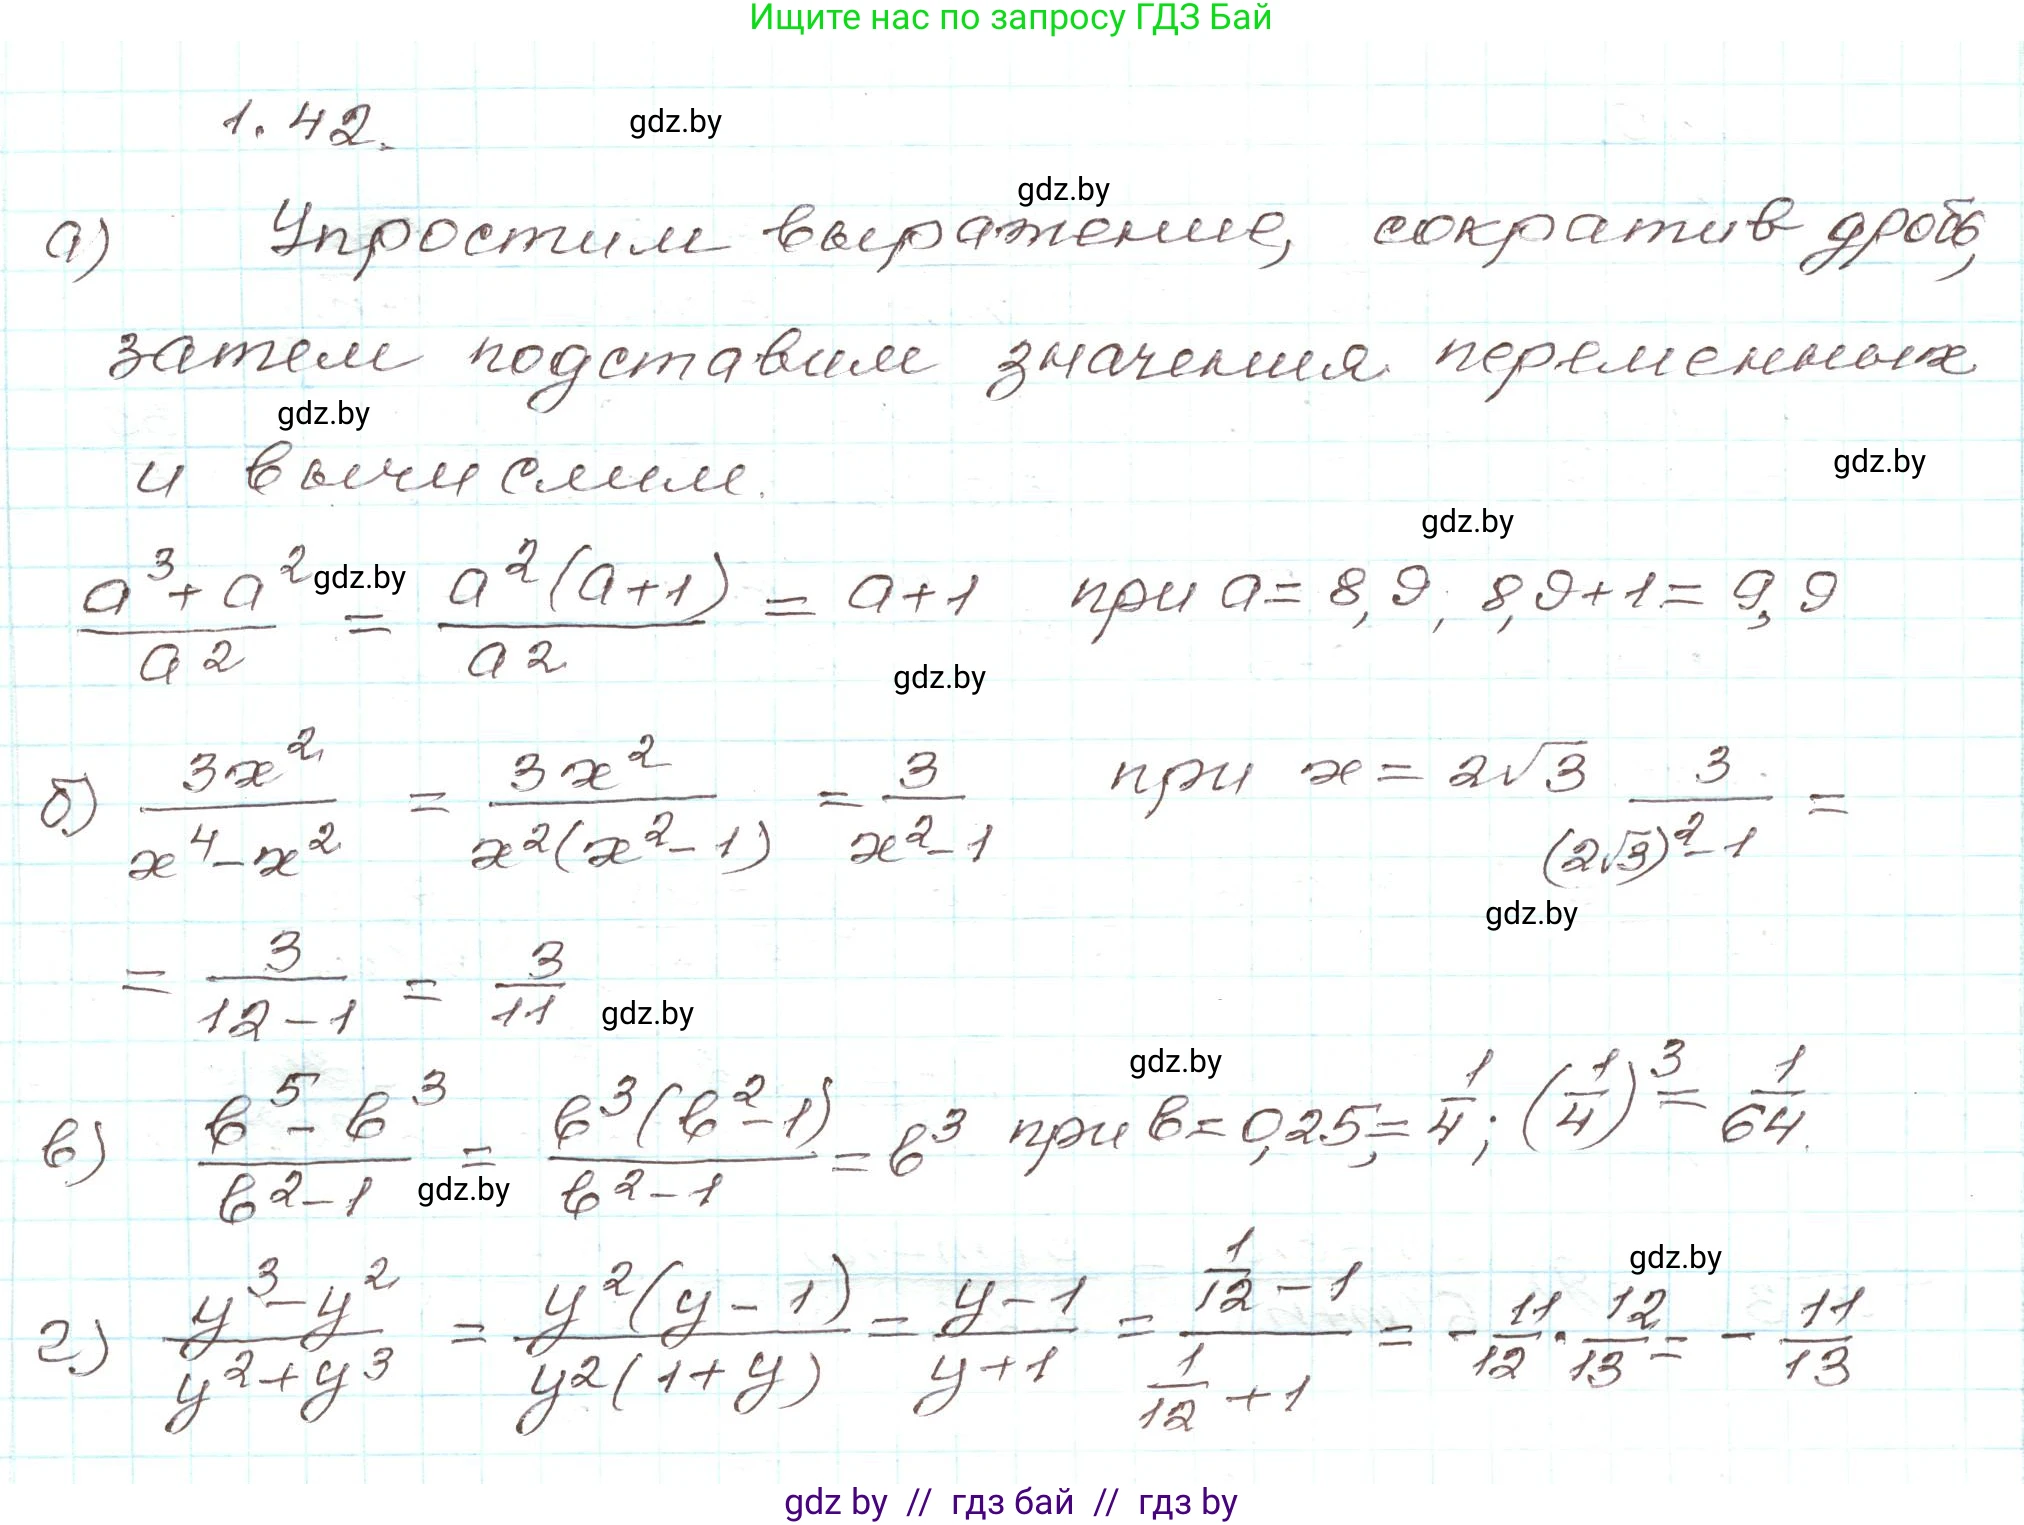 Ищите нас по запросу ГДЗ Бай
1.42. gdz.by
gdz.by
а) Упростим выражение, сократив дробь,
затем подставим значения переменных
gdz.by
и вычислим. gdz.by
gdz.by
(a³ + a²)/a² gdz.by = a²(a+1)/a² = a+1 при a = 8,9; 8,9+1 = 9,9
gdz.by
б) 3x²/(x⁴ - x²) = 3x²/(x²(x² - 1)) = 3/(x² - 1) при x = 2√3 3/((2√3)² - 1) =
gdz.by
= 3/(12 - 1) = 3/11 gdz.by
gdz.by
в) (в⁵ - в³)/(в² - 1) = в³(в² - 1)/(в² - 1) = в³ при в = 0,25 = 1/4; (1/4)³ = 1/64.
gdz.by
gdz.by
г) (y³ - y²)/(y² + y³) = y²(y - 1)/(y²(1 + y)) = (y - 1)/(y + 1) = (1/12 - 1)/(1/12 + 1) = - 11/12 · 12/13 = - 11/13
gdz by // гдз бай // гдз by